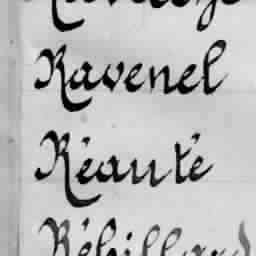 Ravenel
Réauté
Rébillard